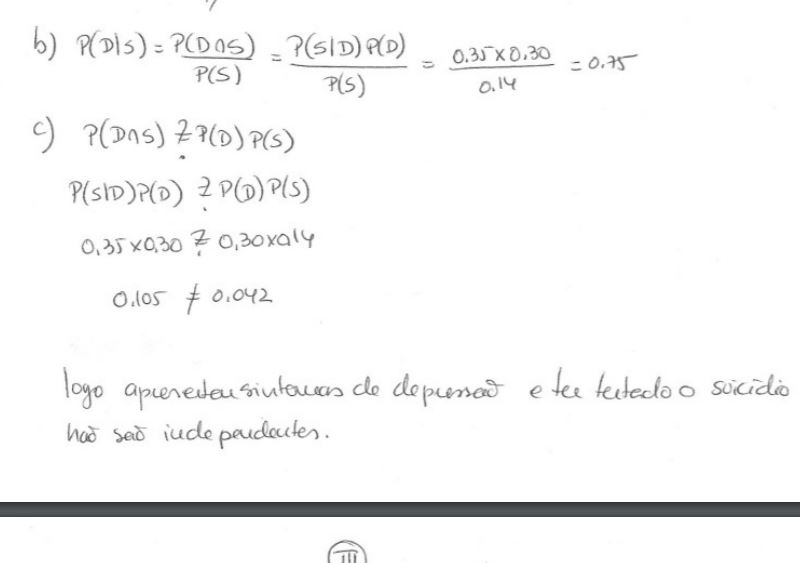 b) P(D|S) = P(D∩S)/P(S) = P(S|D)P(D)/P(S) = 0.35 x 0.30/0.14 = 0.75
c) P(D∩S) ? P(D) P(S)
P(S|D)P(D) ? P(D)P(S)
0,35 x 0,30 ? 0,30 x 0,14
0.105 ≠ 0.042
logo apresentar sintomas de depressão e ter tentado o suicídio
não são independentes.
III